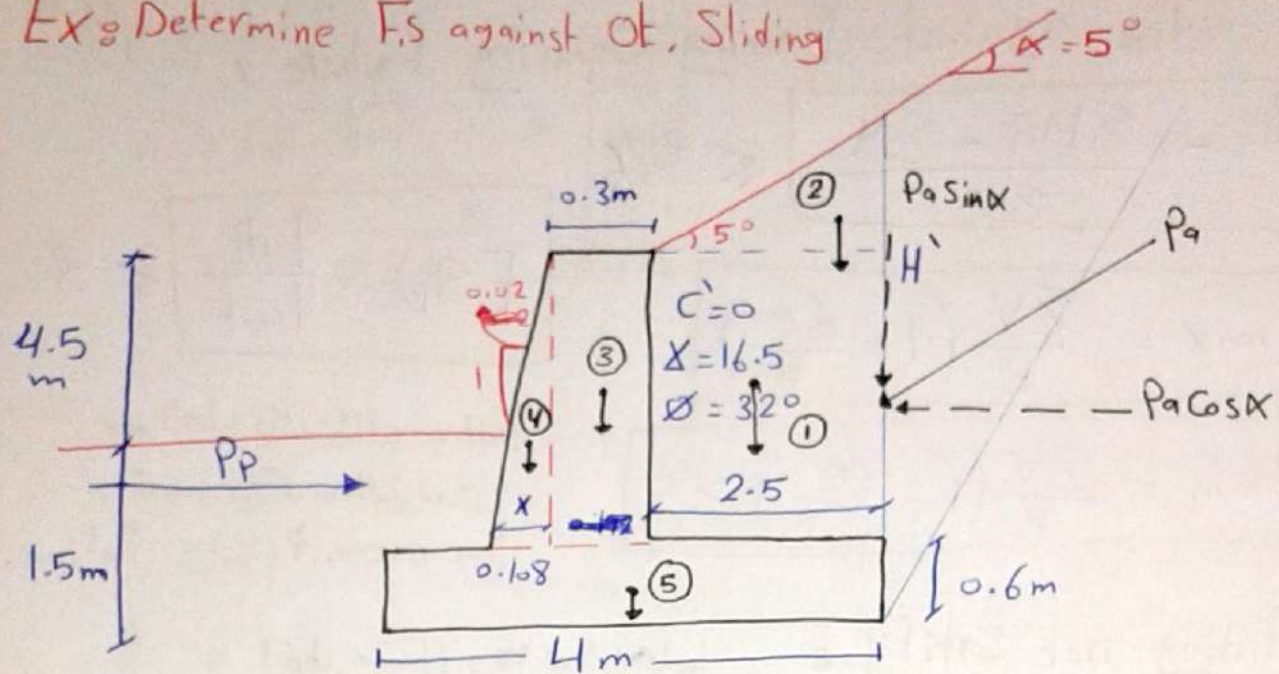 Ex: Determine F.S against Ot, Sliding
α = 5°
0.3m
②
Pa Sinα
Pa
5°
H`
0.02
C`=0
4.5
m
③
γ=16.5
1
Ø = 32°
①
④
Pa Cosα
Pp
2.5
x
1.5m
0.108
⑤
0.6m
4m